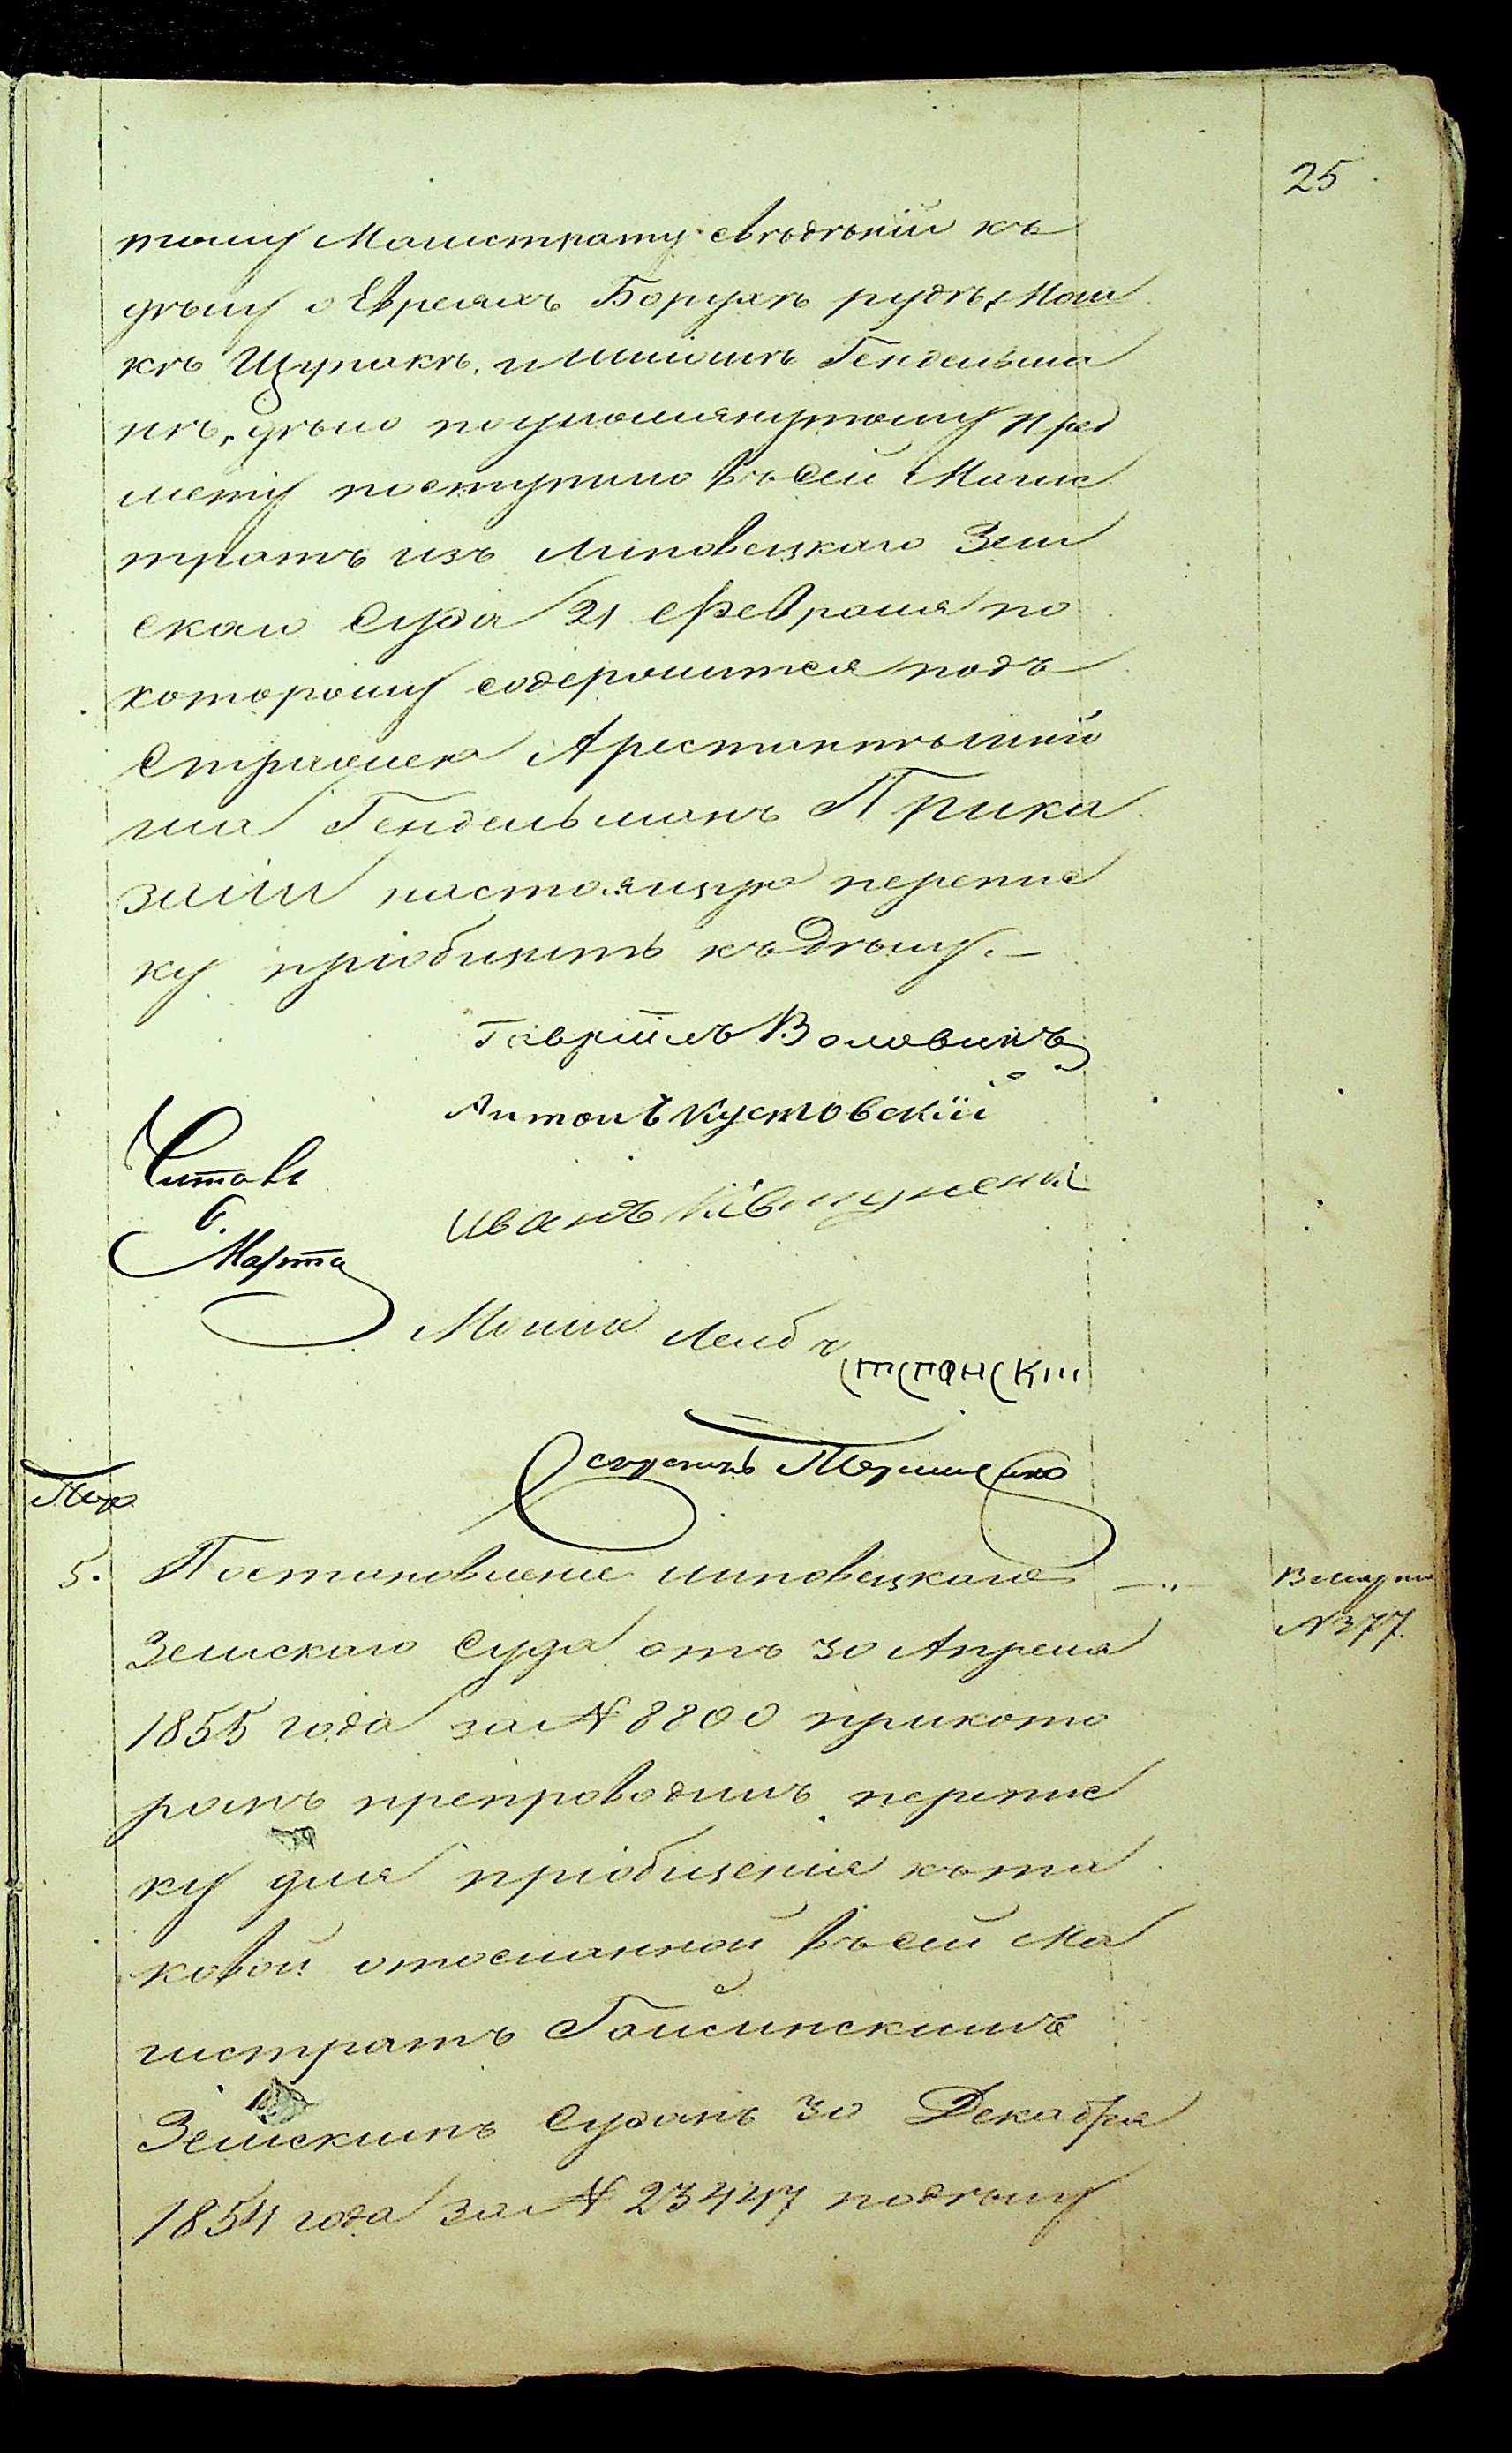 25
тому Магистрату свѣдѣній къ
дѣлу о Евреяхъ Борухѣ рудѣ, Мош
кѣ Щупакѣ, и Шліомѣ Гендельма
нѣ, дѣло поупомянутому пред
мету поступило въ сей Магис
тратъ изъ Липовецкаго Зем
скаго Суда 21 Февраля по
которому содержится подъ
стражею
ма Гендельманъ Прика
зали настоящую перепис
ку пріобщить къ Дѣлу. —
Гавріилъ Воловикъ
Антонъ Кустовскій
Читалъ
6.
Марта
Иванъ
Мошко Лейбъ
5. Постановленіе липовецкаго —„—
Земскаго Суда отъ 30 Апреля
№ 377.
1855 года за № 8800 прикото
ромъ препроводилъ перепис
ку для пріобщенія къ та
ковой отосланной въ сей Ма
гистратъ Гайсинскимъ
Земскимъ Судомъ 30 Декабря
1854 года за № 23447 подѣлу